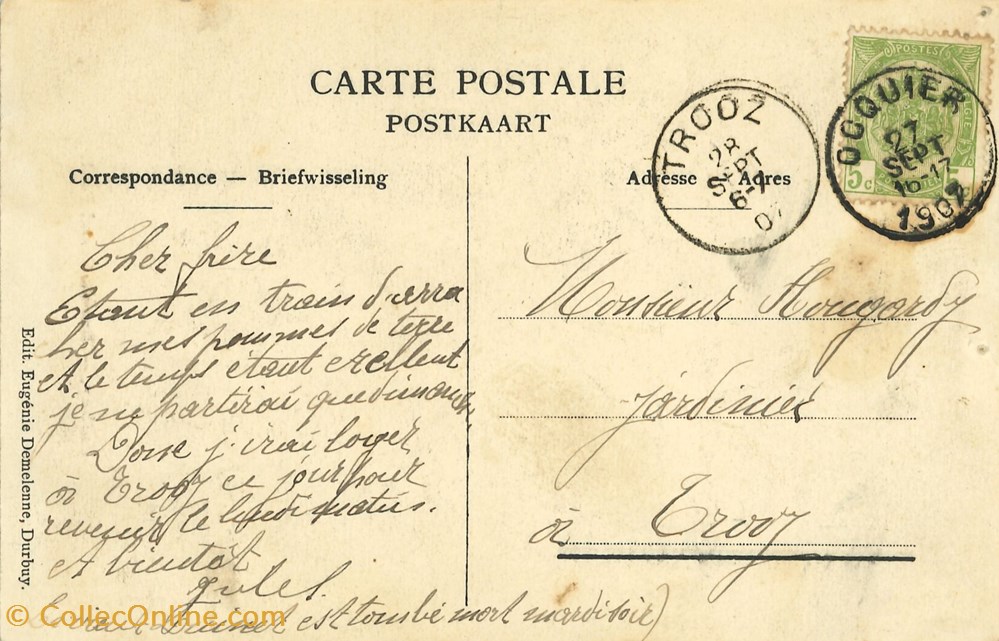 CARTE POSTALE
POSTKAART
Correspondance — Briefwisseling
Adresse — Adres
TROOZ
28
SEPT
6-7
07
POSTES
5c
OCQUIER
27
SEPT
16-17
1907
Cher frère
Etant en train d'arra
cher mes pommes de terre
et le temps étant excellent
je ne partirai que dimanche.
Donc j'irai loger
à Trooz ce jour pour
revenir le lundi matin.
A bientôt
Jules.
est tombé mort mardi soir)
Monsieur Hougardy
jardinier
à Trooz
Edit. Eugénie Demelenne, Durbuy.
© CollecOnline.com